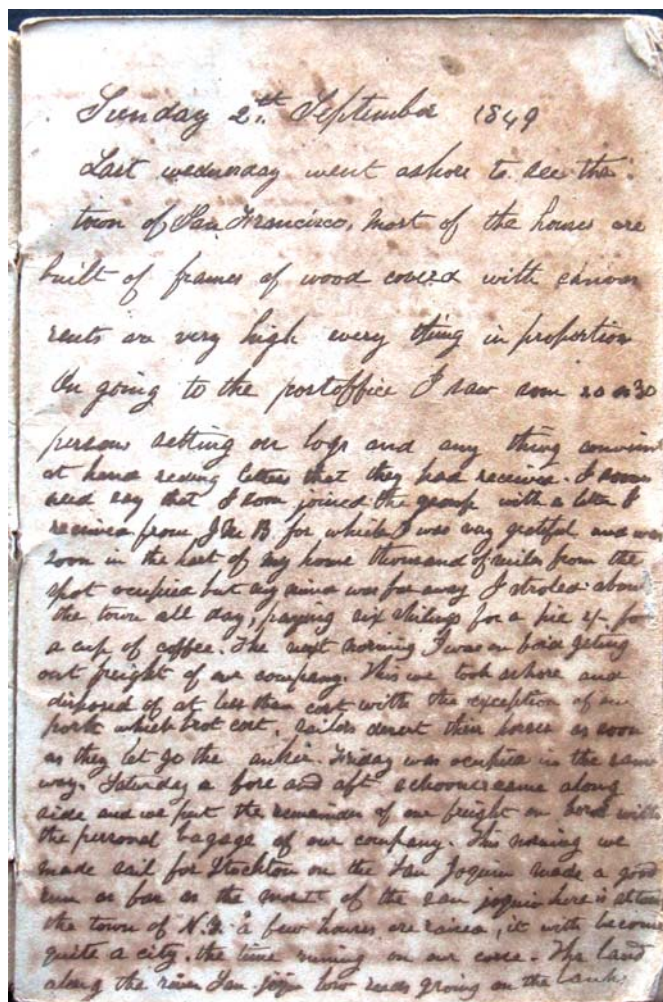 Sunday 2th September 1849
Last wednesday went ashore to see the
town of San Francisco, most of the houses are
built of frames of wood coverd with canvas
rents are very high every thing in proportion
On going to the postoffice I saw som 20 or 30
persons setting on logs and any thing
at hand reding letters that they had received. I
need say that I soon joined the group with a letter I
received from J Mc B for which I was very grateful and was
soon in the of my home thousand of miles from the
spot ocupied but my mind was far away I stroled about
the town all day, paying six shilings for a pie 4/- for
a cup of coffee. The next morning I was on bord geting
out freight of our company. This we took ashore and
disposed of at less than cost with the exception of our
pork which brot cost. sailors desert their as soon
as they let go the anker. Friday was ocupied in the same
way. Saturday a fore and aft schooner came along
side and we put the remainder of our freight on bord with
the personal bagage of our company. This morning we
made sail for Stockton on the San Joquin made a good
run as far as the of the san joquin here is
the town of N.Y. a few houses are raised, it will become
quite a city. the time runing on our corse. The land
along the river San low reeds groing on the bank